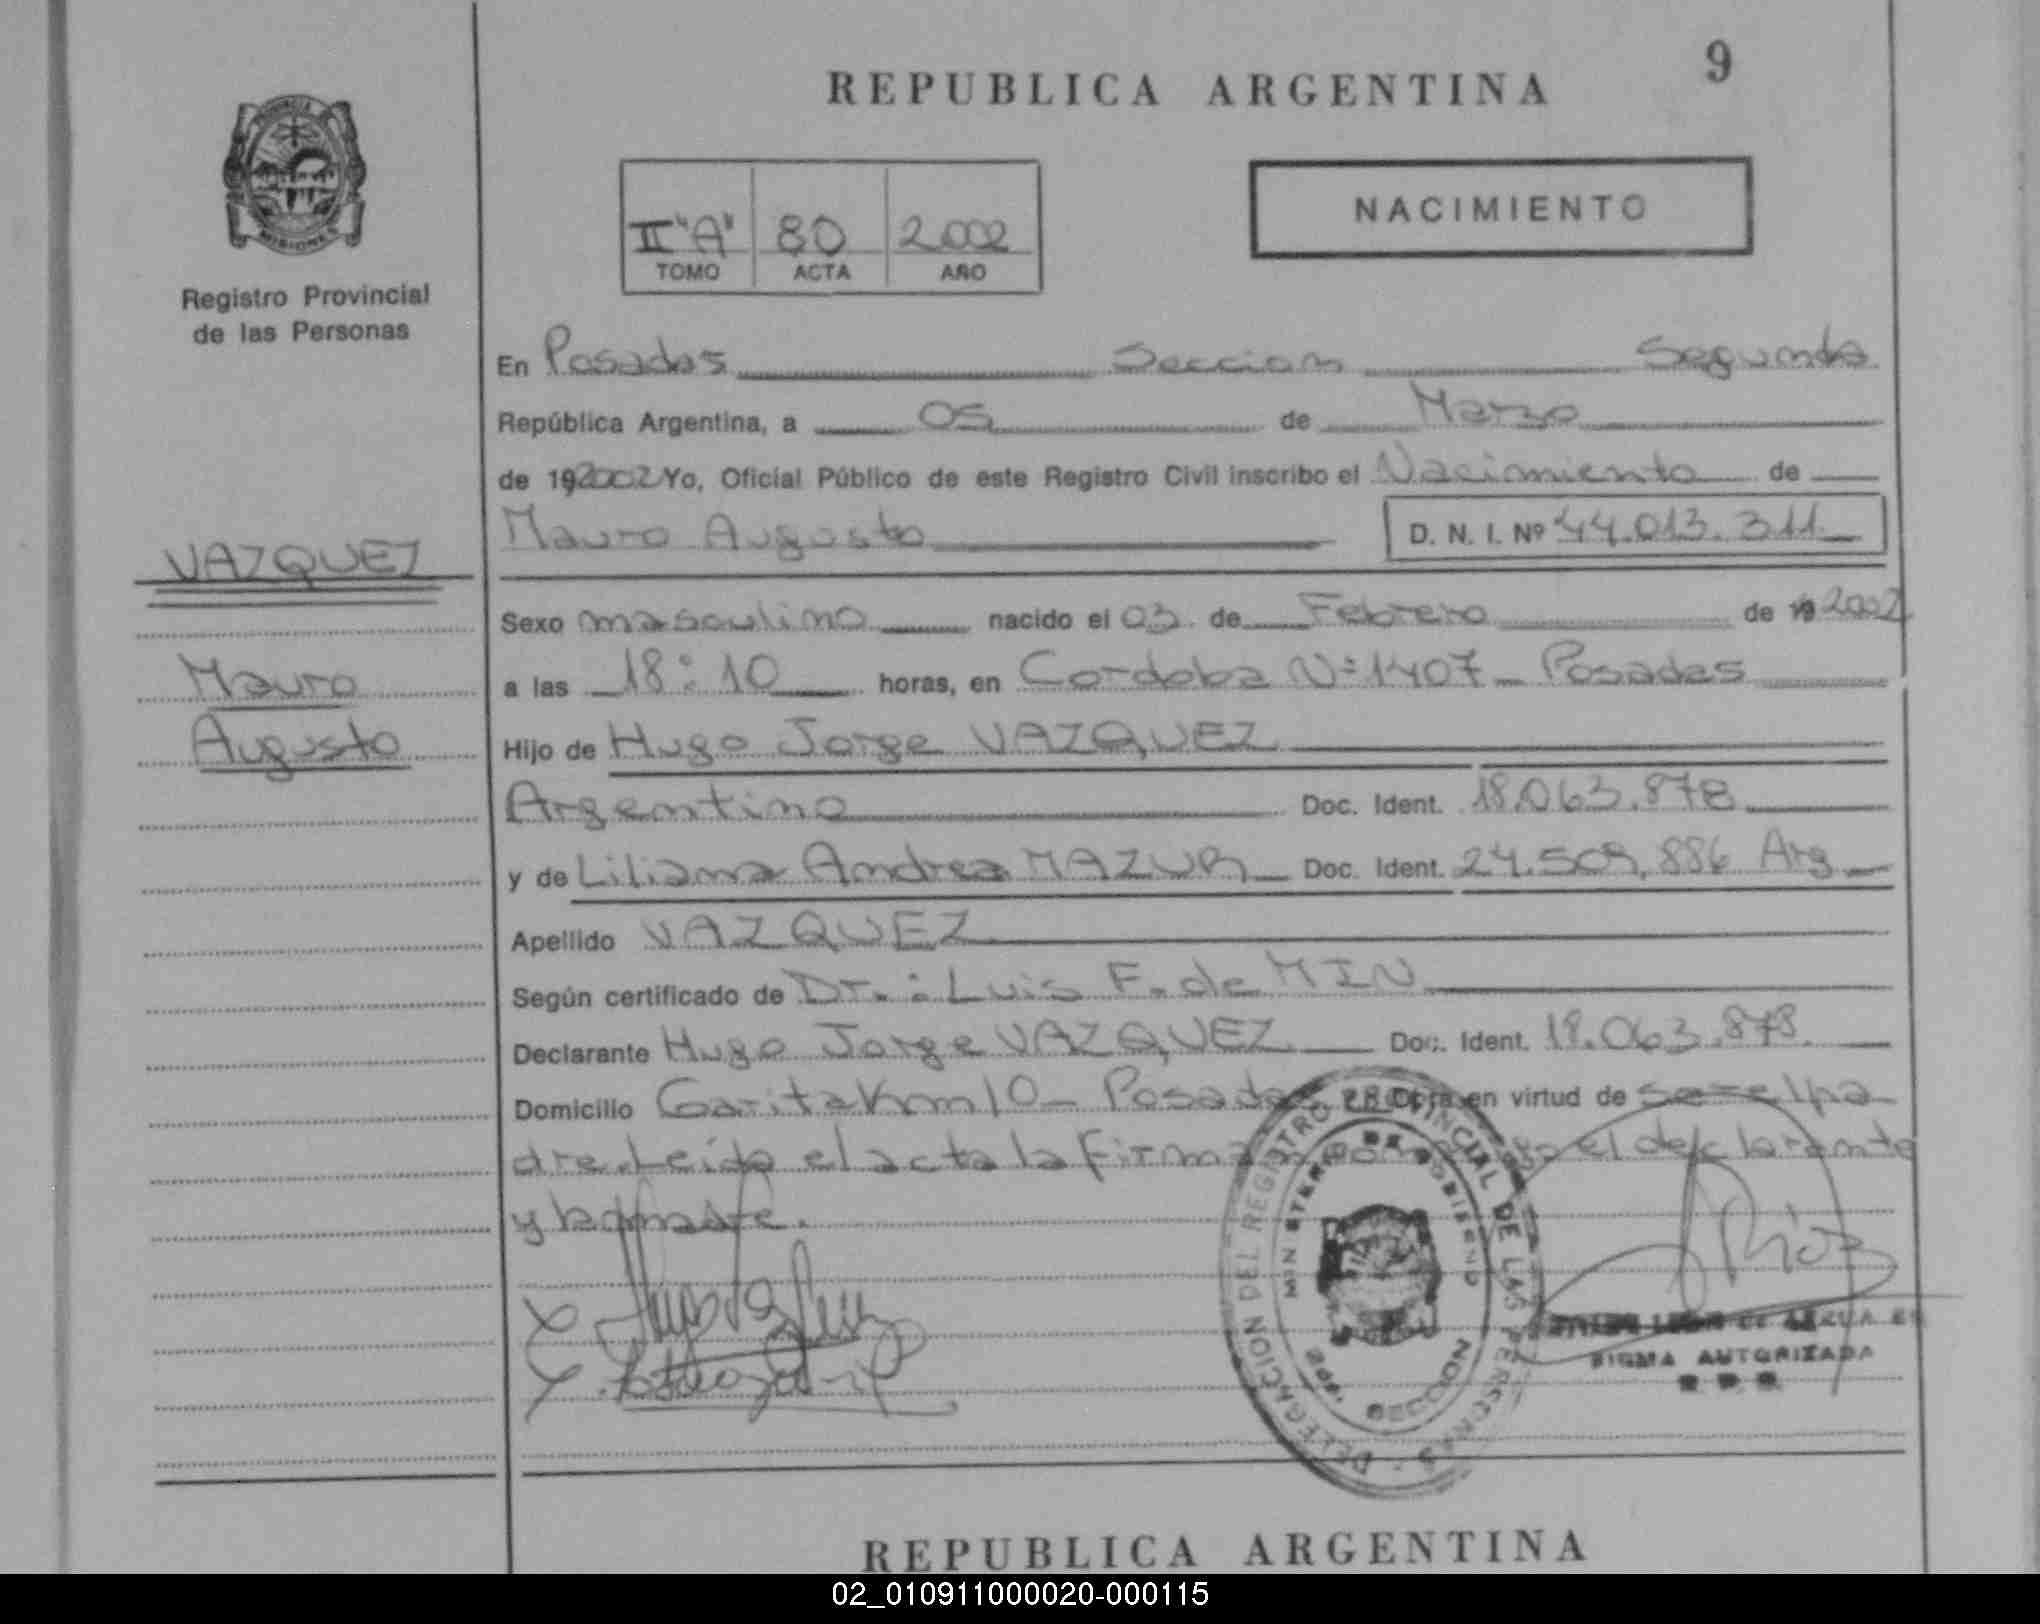 9
REPUBLICA ARGENTINA
PROVINCIA
MISIONES
Registro Provincial
de las Personas
II "A" 80 2.002
TOMO ACTA AÑO
NACIMIENTO
En Posadas Seccion Segunda
República Argentina, a 05 de Marzo
de 192002 Yo, Oficial Público de este Registro Civil inscribo el Nacimiento de
Mauro Augusto D. N. I. Nº 44.013.311
VAZQUEZ
Mauro
Augusto
Sexo masculino nacido el 03 de Febrero de 19 2002
a las 18:10 horas, en Cordoba Nº 1407 - Posadas
Hijo de Hugo Jorge VAZQUEZ
Argentino Doc. Ident. 18.063.878
y de Liliana Andrea MAZUR Doc. Ident. 24.509.886 Arg
Apellido VAZQUEZ
Según certificado de Dr.: Luis F. de MIN
Declarante Hugo Jorge VAZQUEZ Doc. Ident. 18.063.878.
Domicilio Garita Km 10 - Posadas Obra en virtud de ser el pa
dre. Leida el acta la firman el declarante
y la madre.
DELEGACION DEL REGISTRO PROVINCIAL DE LAS PERSONAS
MINISTERIO DE GOBIERNO
2da. SECCION
FIRMA AUTORIZADA
REPUBLICA ARGENTINA
02_010911000020-000115